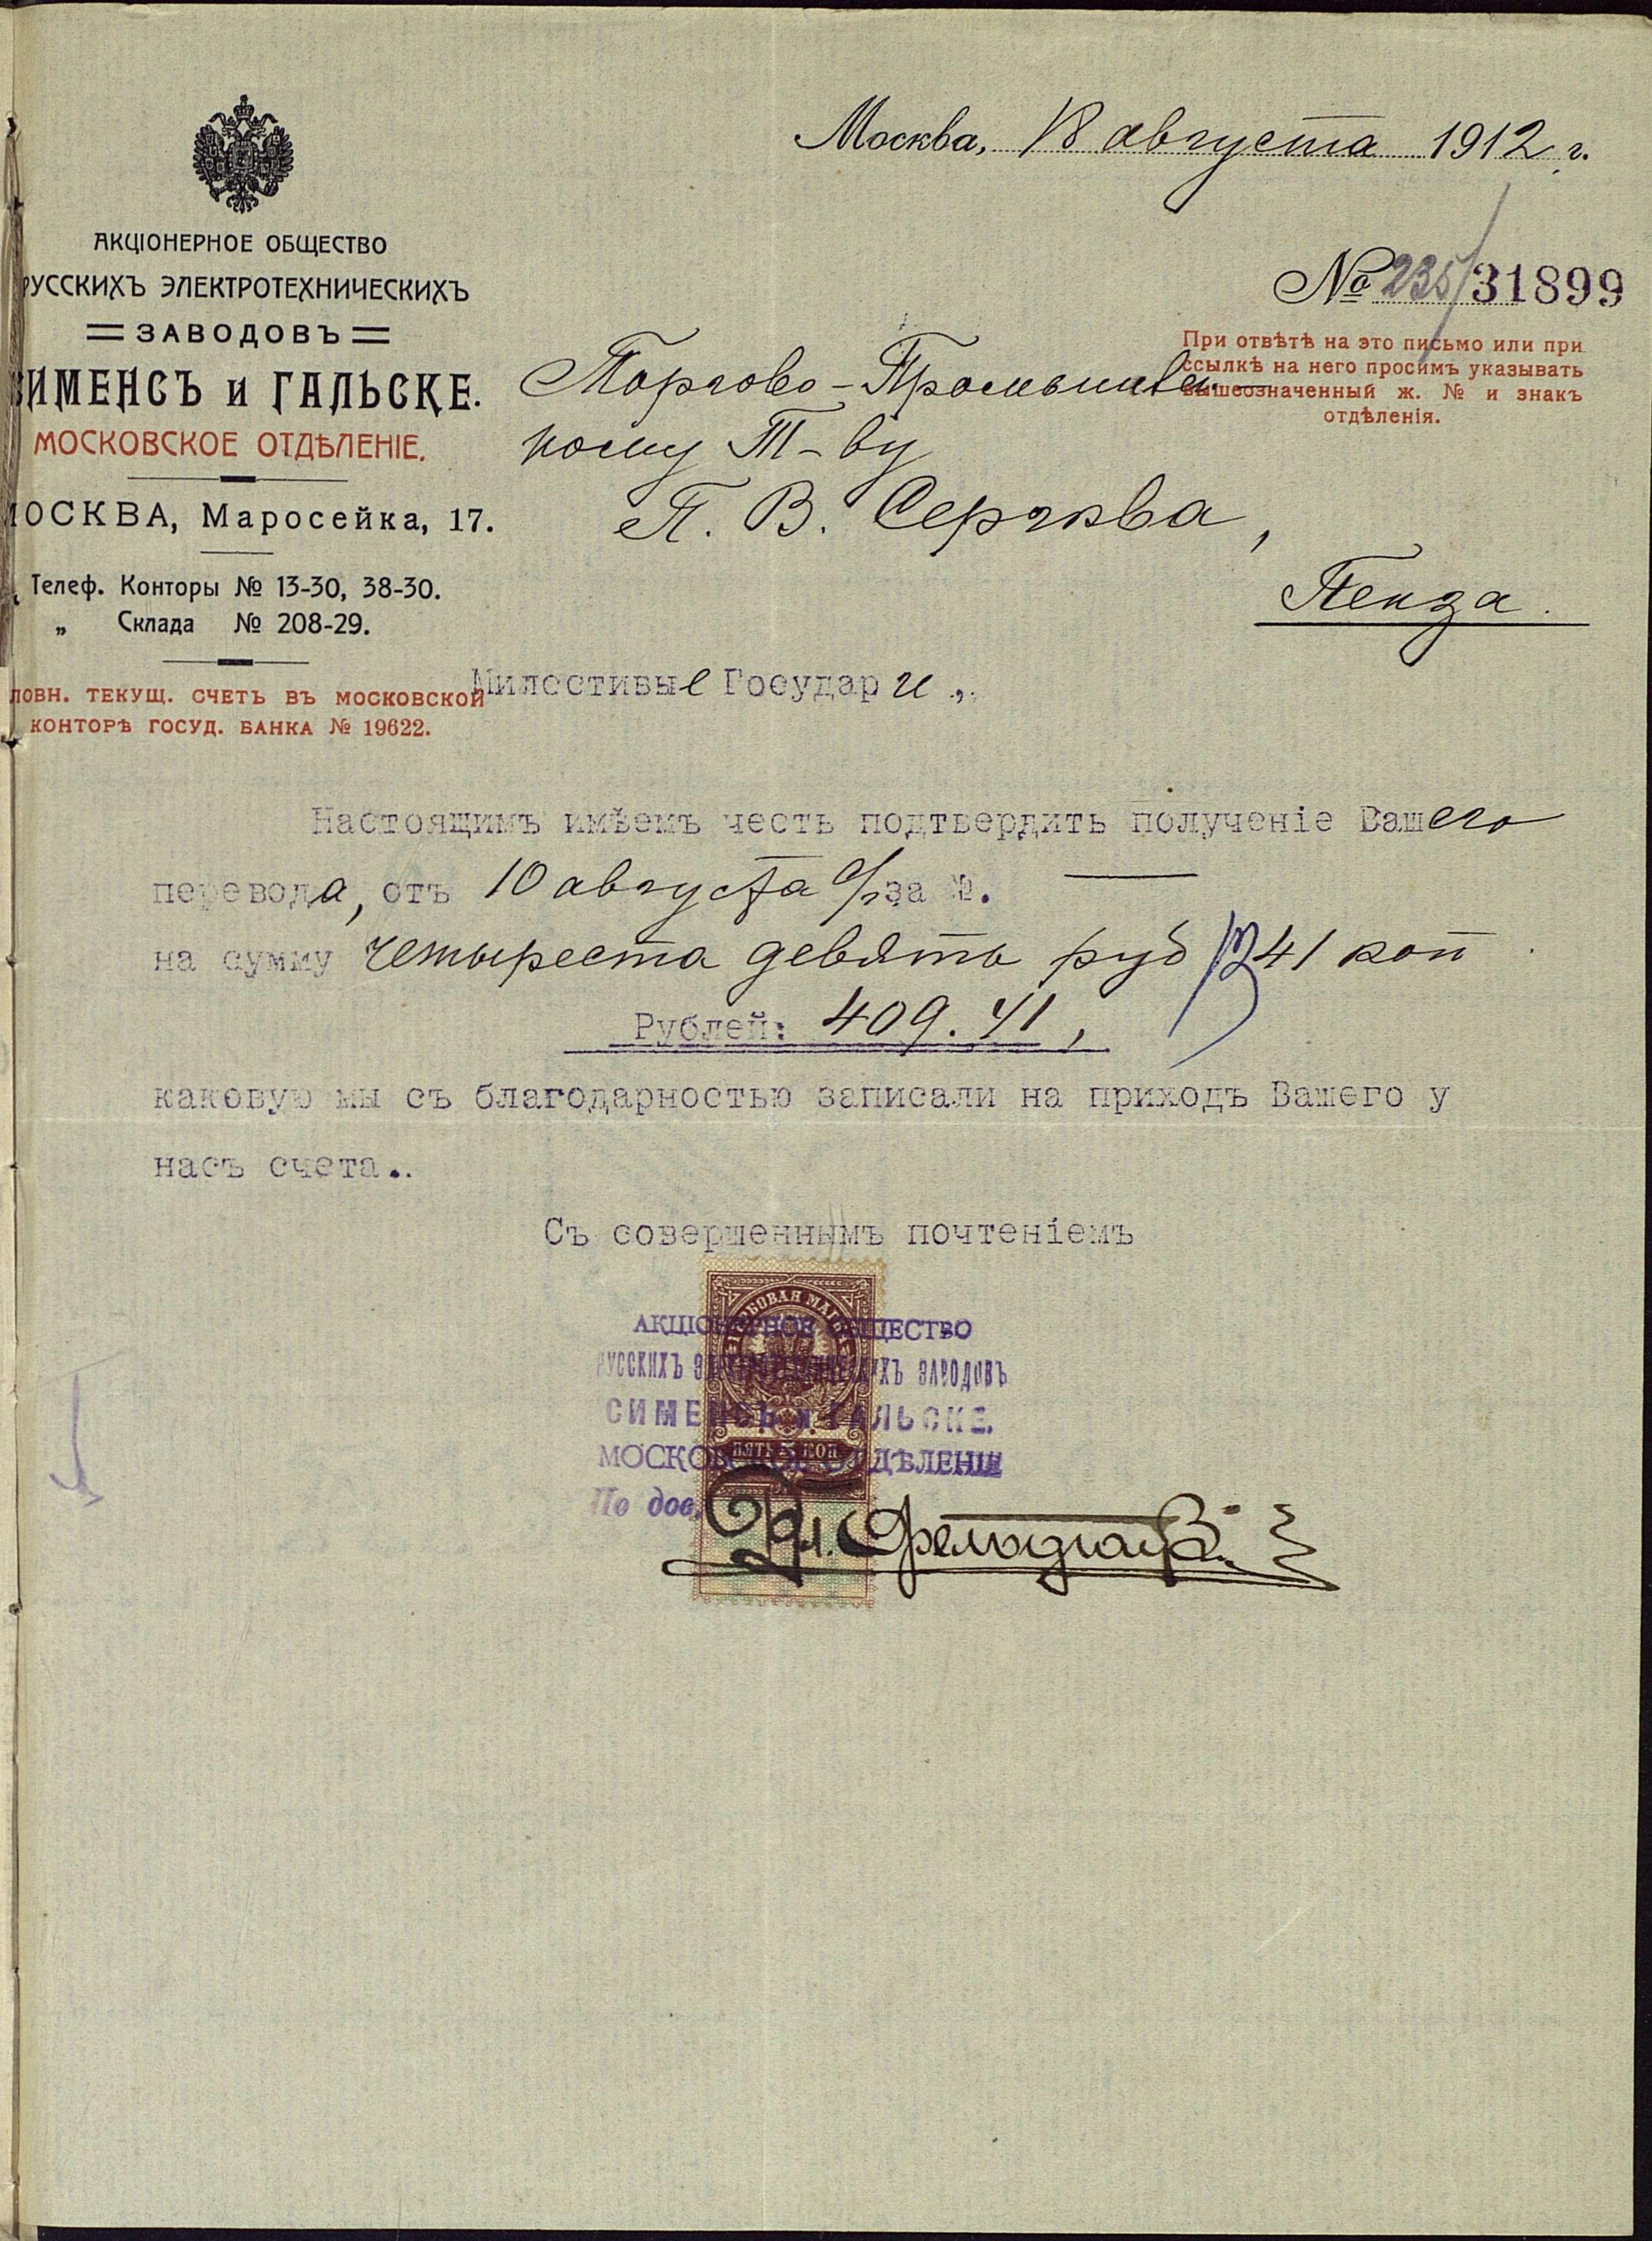 Москва, 18 августа 1912 г.
АКЦІОНЕРНОЕ ОБЩЕСТВО
РУССКИХЪ ЭЛЕКТРОТЕХНИЧЕСКИХЪ
ЗАВОДОВЪ
СИМЕНСЪ и ГАЛЬСКЕ.
МОСКОВСКОЕ ОТДѢЛЕНІЕ.
МОСКВА, Маросейка, 17.
Телеф. Конторы № 13-30, 38-30.
„ Склада № 208-29.
ЛОВН. ТЕКУЩ. СЧЕТЪ ВЪ МОСКОВСКОЙ
КОНТОРѢ ГОСУД. БАНКА № 19622.
№ 235/31899
При отвѣтѣ на это письмо или при
ссылкѣ на него просимъ указывать
вышеозначенный ж. № и знакъ
отдѣленія.
Торгово-Промышлен-
ному Т-ву
П. В. Сергѣева,
Пенза.
Милостивые Государи,
Настоящимъ имѣемъ честь подтвердить полученіе Вашего
перевода, отъ 10 августа с/г за №. —
на сумму четыреста девять руб 41 коп
Рублей: 409.41,
каковую мы съ благодарностью записали на приходъ Вашего у
насъ счета..
Съ совершеннымъ почтеніемъ
ГЕРБОВАЯ МАРКА
ПЯТЬ КОП.
АКЦІОНЕРНОЕ ОБЩЕСТВО
РУССКИХЪ ЭЛЕКТРОТЕХНИЧЕСКИХЪ ЗАВОДОВЪ
СИМЕНСЪ и ГАЛЬСКЕ.
МОСКОВСКОЕ ОТДѢЛЕНІЕ
По дов.